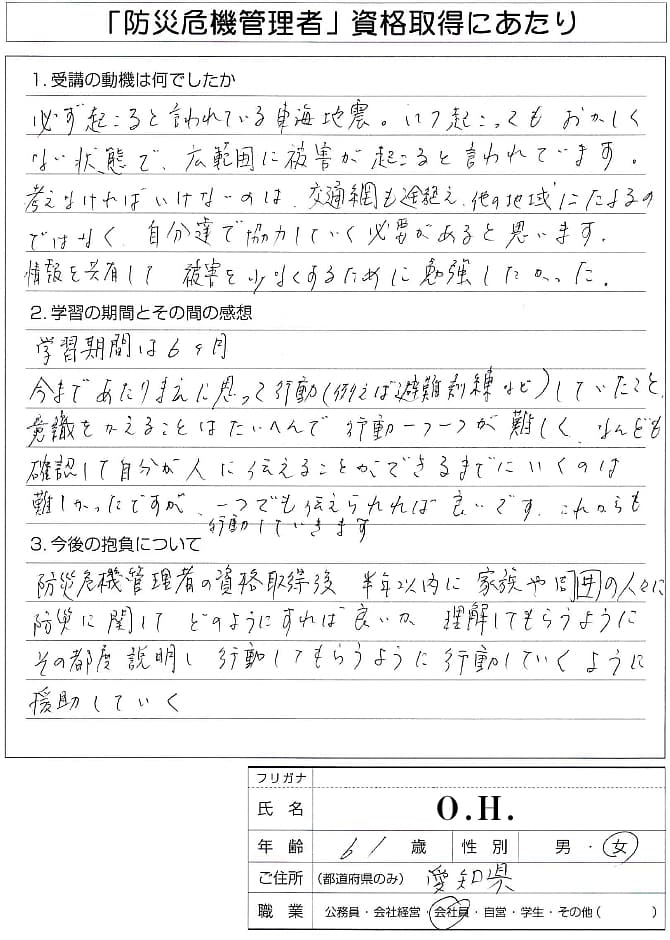 「防災危機管理者」資格取得にあたり
1. 受講の動機は何でしたか
必ず起こると言われている東海地震。いつ起こってもおかしく
ない状態で、広範囲に被害が起こると言われています。
考えなければいけないのは、交通網も途絶え、他の地域にたよるの
ではなく、自分達で協力していく必要があると思います。
情報を共有して 被害を少なくするために勉強したかった。
2. 学習の期間とその間の感想
学習期間は6ヶ月
今まであたりまえに思って行動(例えば避難訓練など)していたこと、
意識をかえることはたいへんで 行動一つ一つが難しく、なんども
確認して自分が人に伝えることができるまでにいくのは
難しかったですが、一つでも伝えられれば良いです、これからも
行動していきます
3. 今後の抱負について
防災危機管理者の資格取得後 半年以内に 家族や周囲の人々に
防災に関して どのようにすれば良いか 理解してもらうように
その都度説明し 行動してもらうように行動していくように
援助していく
フリガナ
氏名 O.H.
年齢 61 歳 性別 男・女
ご住所 (都道府県のみ) 愛知県
職業 公務員・会社経営・会社員・自営・学生・その他( )